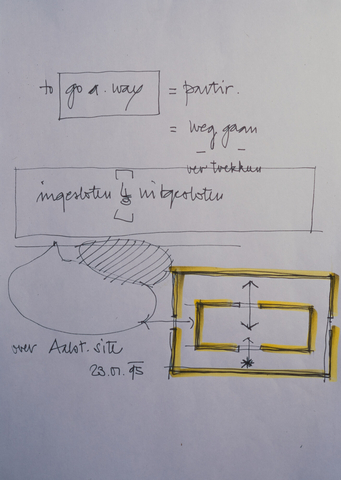 to go a.way = partir.
= weg gaan
ver trekken
ingesloten & uitgesloten
over site
23.01.95